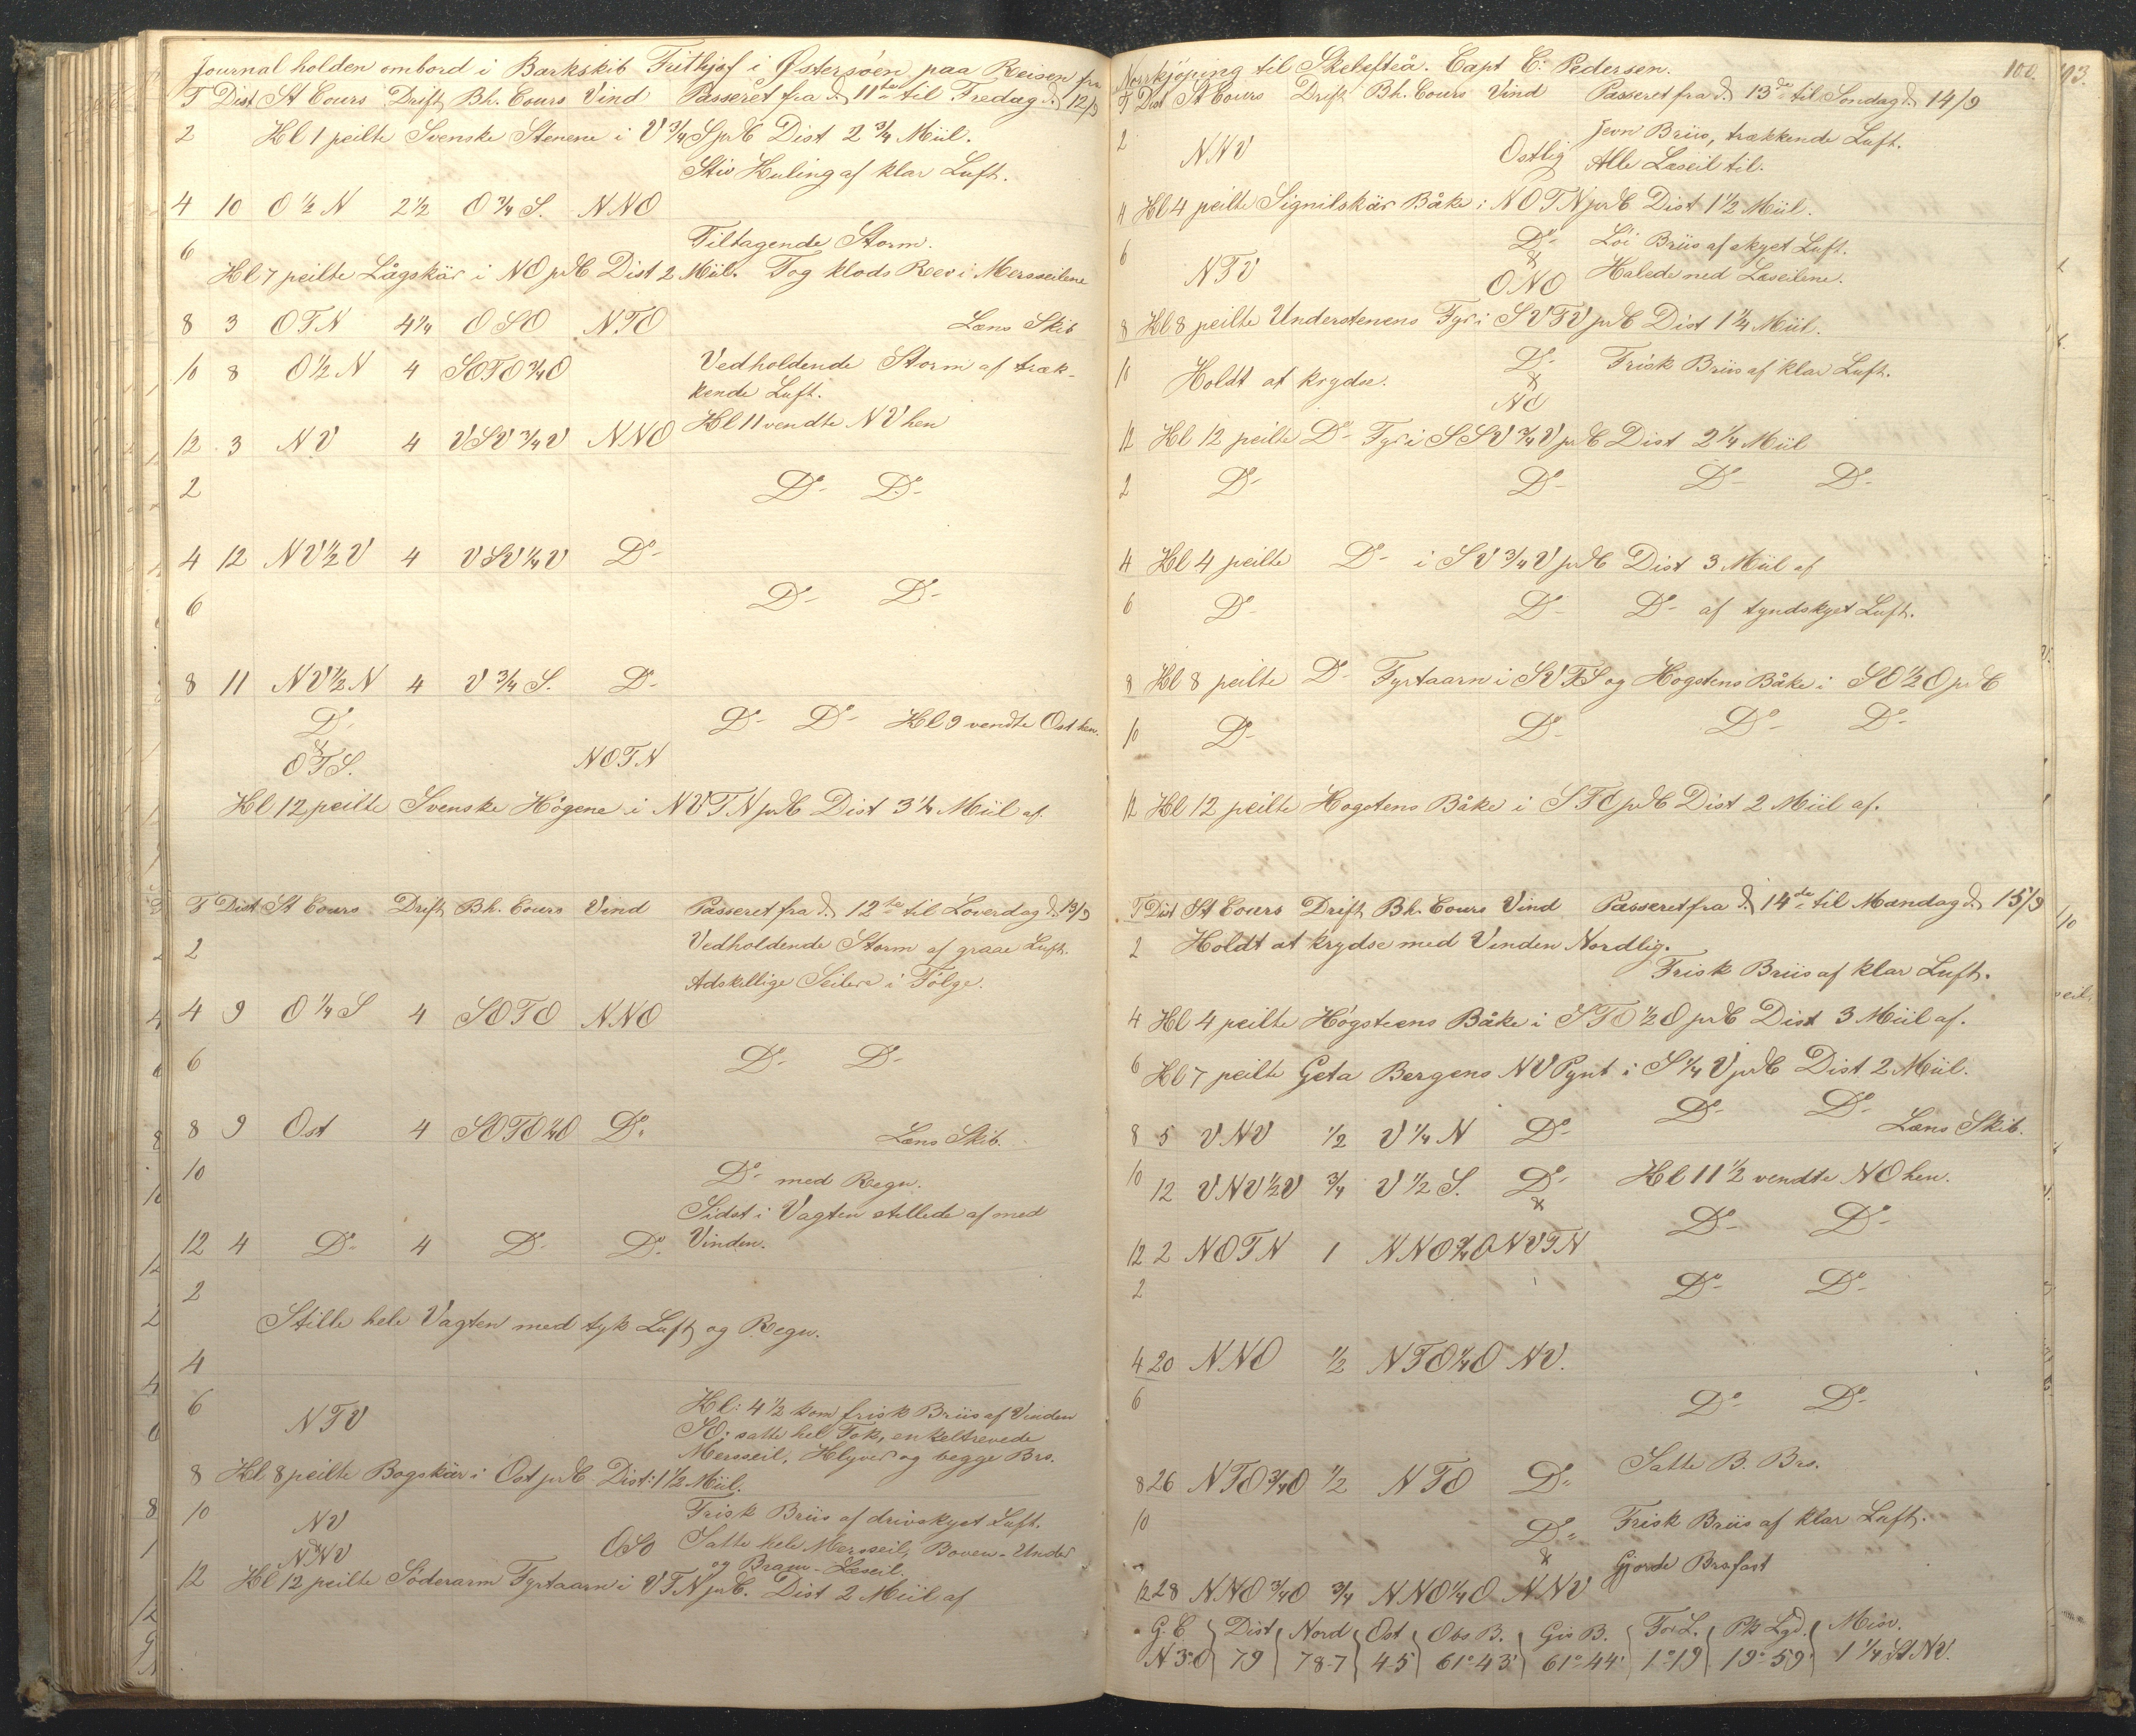 Journal holden ombord i Barkskib Frithjof i Østersøen paa Reisen fra
T Dist St Cours Drift Bh. Cours Vind Passeret fra d. 11te til Fredag d. 12/9
2 Hl 1 peilte Svenske Stenene i V 3/4 S pr C Dist 2 3/4 Miil.
Stiv Kuling af klar Luft.
4 10 O 1/2 N 2 1/2 O 3/4 S. NNO
6 Tiltagende Storm.
Hl 7 peilte Lågskär i NO pr C Dist 2 Miil. Tog klods Rev i Mersseilene
8 3 OTN 4 1/4 OSO NTO Læns Skib
10 8 O 1/2 N 4 SOTO 3/4 O Vedholdende Storm af træk-
kende Luft.
Hl 11 vendte NV hen
12 3 NV 4 VSV 3/4 V NNO
2 Do- Do-
4 12 NV 1/2 V 4 VSV 1/4 V Do-
6 Do- Do-
8 11 NV 1/2 N 4 V 3/4 S. Do-
Do- Do- Do- Hl 9 vendte Ost hen.
&
OTS. NOTN
Hl 12 peilte Svenske Högene i NVTN pr C Dist 3 1/4 Miil af.
T Dist St Cours Drift Bh. Cours Vind Passeret fra d. 12te til Loverdag d. 13/9
2 Vedholdende Storm af graae Luft.
Adskellige Seilere i Følge.
4 9 O 1/4 S 4 SOTO NNO
6 Do- Do-
8 9 Ost 4 SOTO 1/4 O Do- Læns Skib.
10 Do- med Regn.
Sidst i Vagten stillede af med
12 4 Do- 4 Do- Do- Vinden.
2
Stille hele Vagten med tyk Luft og Regn.
4
6 NTV Hl: 4 1/2 kom frisk Briis af Vinden
SO: satte hel Fok, enkeltrevede
Mersseil, Klyver og begge Brs.
8 Hl 8 peilte Bogskär i Ost pr C Dist: 1 1/2 Miil.
10 NV Frisk Briis af drivskyet Luft.
&
NNV OSO Satte hele Mersseil, Boven-Under
og Bram-Læseil.
12 Hl 12 peilte Söderarm Fyrtaarn i VTN pr C. Dist 2 Miil af
Norrkjøping til Skelefteå. Capt C: Pedersen. 100.
T Dist St Cours Drift Bh. Cours Vind Passeret fra d. 13de til Sondag d. 14/9
2 NNV Ostlig Jevn Briis, trækkende Luft.
Alle Læseil til.
4 Hl 4 peilte Signilskär Båke i NOTN pr C Dist 1 1/2 Miil.
6 NTV Do- Löi Briis af skyet Luft.
&
ONO Halede ned Læseilene.
8 Hl 8 peilte Understenens Fyr i SVTV pr C Dist 1 1/4 Miil.
10 Holdt at krydse. Do- Frisk Briis af klar Luft.
&
NO
12 Hl 12 peilte Do- Fyr i SSV 3/4 V pr C Dist 2 1/4 Miil
2 Do- Do- Do- Do-
4 Hl 4 peilte Do- i SV 3/4 V pr C Dist 3 Miil af
6 Do- Do- Do- af tyndskyet Luft.
8 Hl 8 peilte Do- Fyrtaarn i SVTS og Hogstens Båke i SO 1/2 O pr C
10 Do- Do- Do- Do-
12 Hl 12 peilte Hogstens Båke i STO pr C Dist 2 Miil af.
T Dist St Cours Drift Bh. Cours Vind Passeret fra d. 14de til Mandag d. 15/9
2 Holdt at krydse med Vinden Nordlig.
Frisk Briis af klar Luft.
4 Hl 4 peilte Högsteens Båke i STO 1/2 O pr C Dist 3 Miil af.
6 Hl 7 peilte Geta Bergens NV Pynt i S 1/4 V pr C Dist 2 Miil.
Do- Do-
8 5 VNV 1/2 V 1/4 N Do- Læns Skib.
10 12 VNV 1/2 V 3/4 V 1/2 S. Do- Hl 11 1/2 vendte NO hen.
&
Do- Do-
12 2 NOTN 1 NNO 3/4 O NVTN
2 Do- Do-
4 20 NNO 1/2 NTO 1/4 O NV.
6 Do- Do-
Satte B. Brs.
8 26 NTO 3/4 O 1/2 NTO Do-
10 Do- Frisk Briis af klar Luft.
&
Gjorde Brs fast
12 28 NNO 3/4 O 3/4 NNO 1/4 O NNV
G. C Dist Nord Ost Obs B. Gis B. For L. Pk Lgd. Misv.
N 3 O 79 78-7 4-5 61°43' 61°44' 1°19 19°59' 1 1/4 St NV.